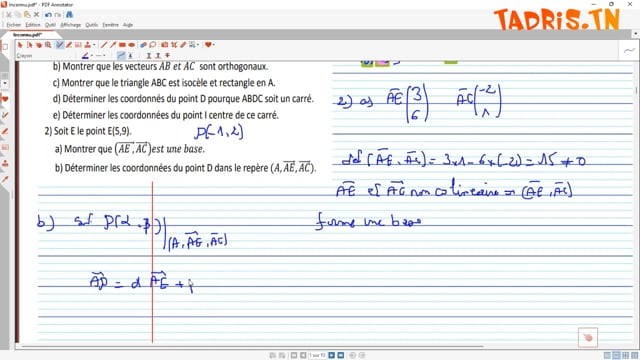 Inconnu.pdf* - PDF Annotator
TADRIS.TN
Fichier Edition
Crayon
b) Montrer que les vecteurs AB et AC sont orthogonaux.
c) Montrer que le triangle ABC est isocèle et rectangle en A.
d) Déterminer les coordonnés du point D pourque ABDC soit un carré.
e) Déterminer les coordonnées du point I centre de ce carré.
2) Soit E le point E(5,9). D(-1,2)
a) Montrer que (AE, AC)est une base.
b) Déterminer les coordonnées du point D dans le repère (A, AE, AC).
2) a) AE (3 6) AC (-2 1)
det(AE, AC) = 3x1 - 6x(-2) = 15 ≠ 0
AE et AC non colinéaire = (AE, AC)
forme une base
b) Soit D(α, β) (A, AE, AC)
AD = α AE +
1 sur 10